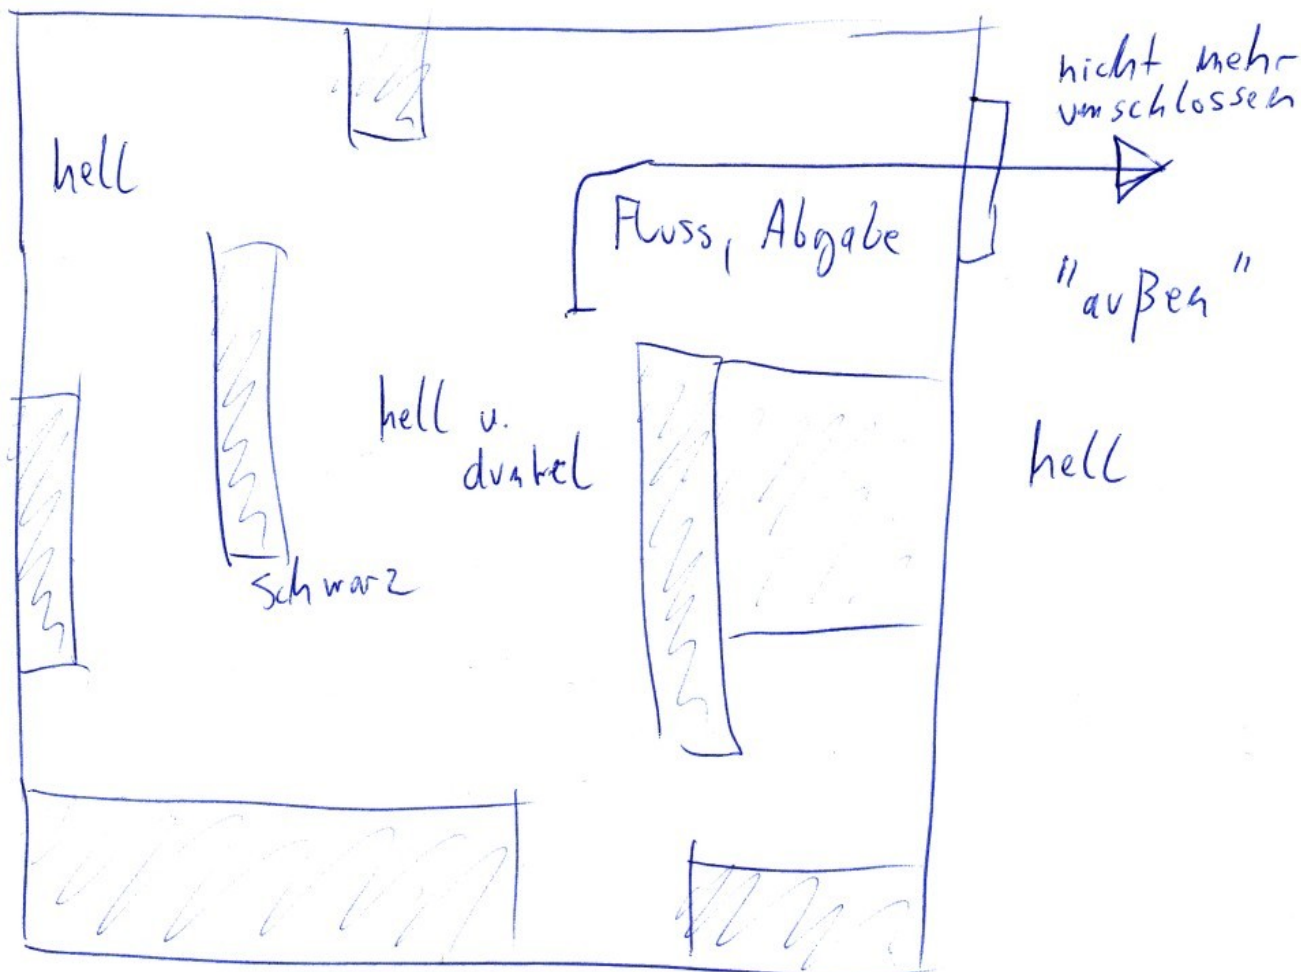 nicht mehr
umschlossen
hell
Fluss, Abgabe
"außen"
hell u.
dunkel
hell
schwarz